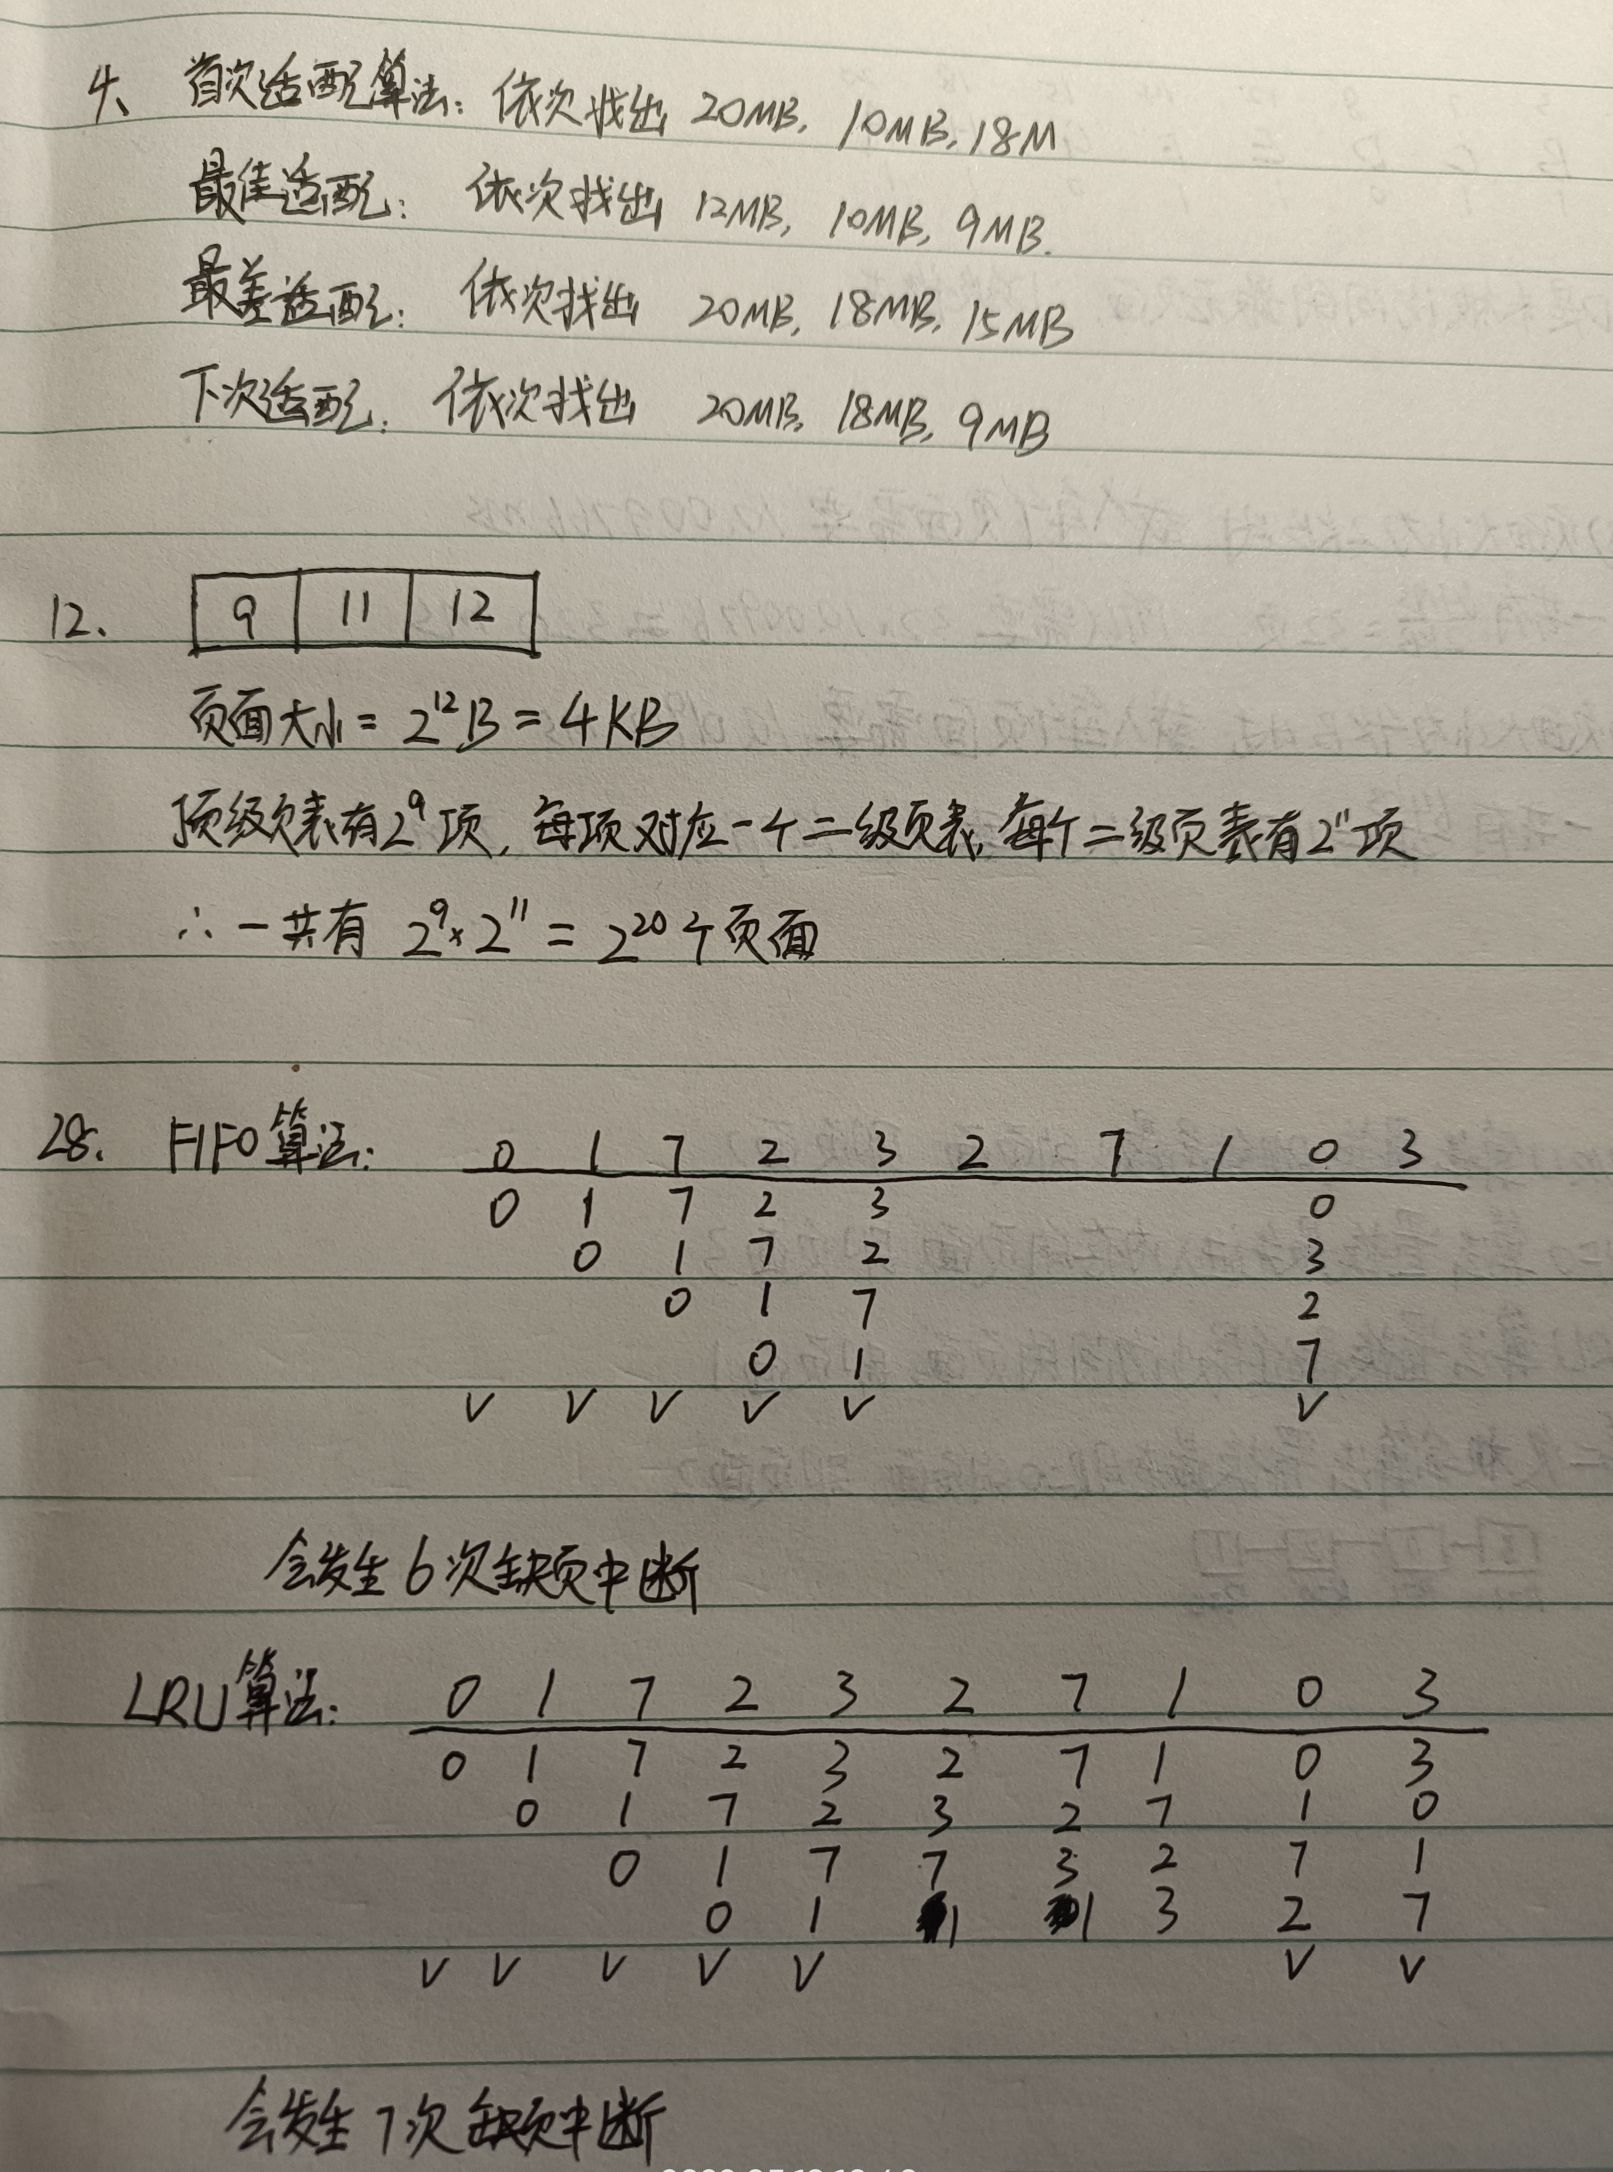 4、首次适配算法：依次找出 20MB, 10MB, 18M
最佳适配：依次找出 12MB, 10MB, 9MB.
最差适配：依次找出 20MB, 18MB, 15MB
下次适配：依次找出 20MB, 18MB, 9MB
12. 9 11 12
页面大小 = 2¹²B = 4KB
顶级页表有2⁹项, 每项对应一个二级页表, 每个二级页表有2¹¹项
∴ 一共有 2⁹×2¹¹ = 2²⁰个页面
28. FIFO算法: 0 1 7 2 3 2 7 1 0 3
0 1 7 2 3 0
0 1 7 2 3
0 1 7 2
0 1 7
√ √ √ √ √ √
会发生6次缺页中断
LRU算法: 0 1 7 2 3 2 7 1 0 3
0 1 7 2 3 2 7 1 0 3
0 1 7 2 3 2 7 1 0
0 1 7 7 3 2 7 1
0 1 1 1 3 2 7
√ √ √ √ √ √ √
会发生7次缺页中断